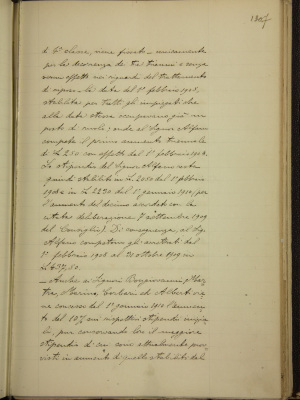 di 4a classe, viene fissato - unicamente
per la decorrenza dei tre trienni e senza
verun effetto nei riguardi del trattamento
di riposo - la data del 1° febbraio 1905,
stabilita per tutti gli impiegati che
alla data stessa occupavano già un
posto di ruolo; onde al signor Alfano
compete il primo aumento triennale
di L. 250 con effetto dal 1° febbraio 1908.
Lo stipendio del signor Alfano resta
quindi stabilito in L. 2050 dal 1° febbraio
1908 e in L. 2250 dal 1° gennaio 1910, per
l'aumento del decimo accordato con la
citata deliberazione 7 settembre 1909
del Consiglio. Di conseguenza, al sig.
Alfano competono gli arretrati dal
1° febbraio 1908 al 31 ottobre 1909 in
L. 437,50.
- Anche ai signori
ed Alberti vie
ne concesso dal 1° gennaio 1910 l'aumen
to del 10% sui rispettivi stipendi inizia
li, pur conservando loro il maggiore
stipendio di cui sono attualmente prov
visti in aumento di quello stabilito dal